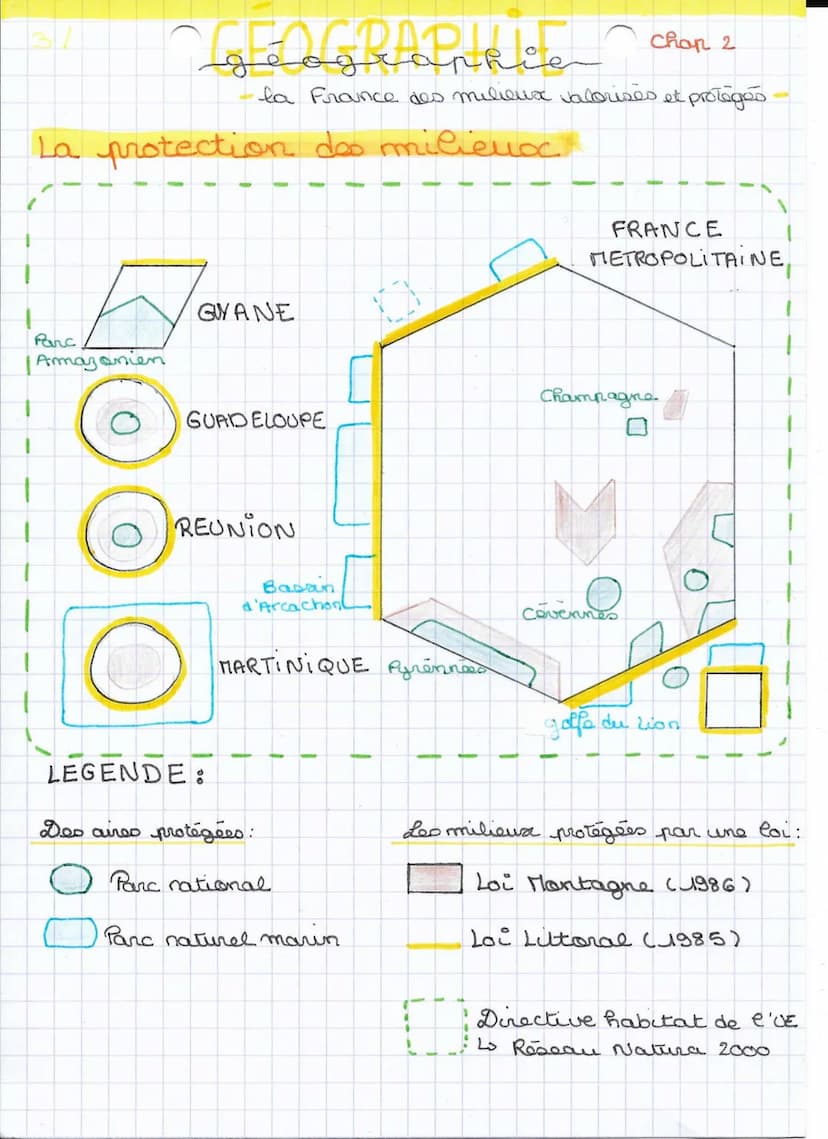 3/
GÉOGRAPHIE
géographie
Chap 2
- la France des milieux valorisés et protégés -
La protection des milieux
FRANCE
METROPOLITAINE
GUYANE
Parc
Amazonien
GUADELOUPE
REUNION
MARTINIQUE
Champagne
Bassin
d'Arcachon
Cévennes
Pyrénnées
golfe du Lion
LEGENDE :
Des aires protégées :
Parc national
Parc naturel marin
Les milieux protégées par une loi :
Loi Montagne (1986)
Loi Littoral (1985)
Directive habitat de l'UE
↳ Réseau Natura 2000